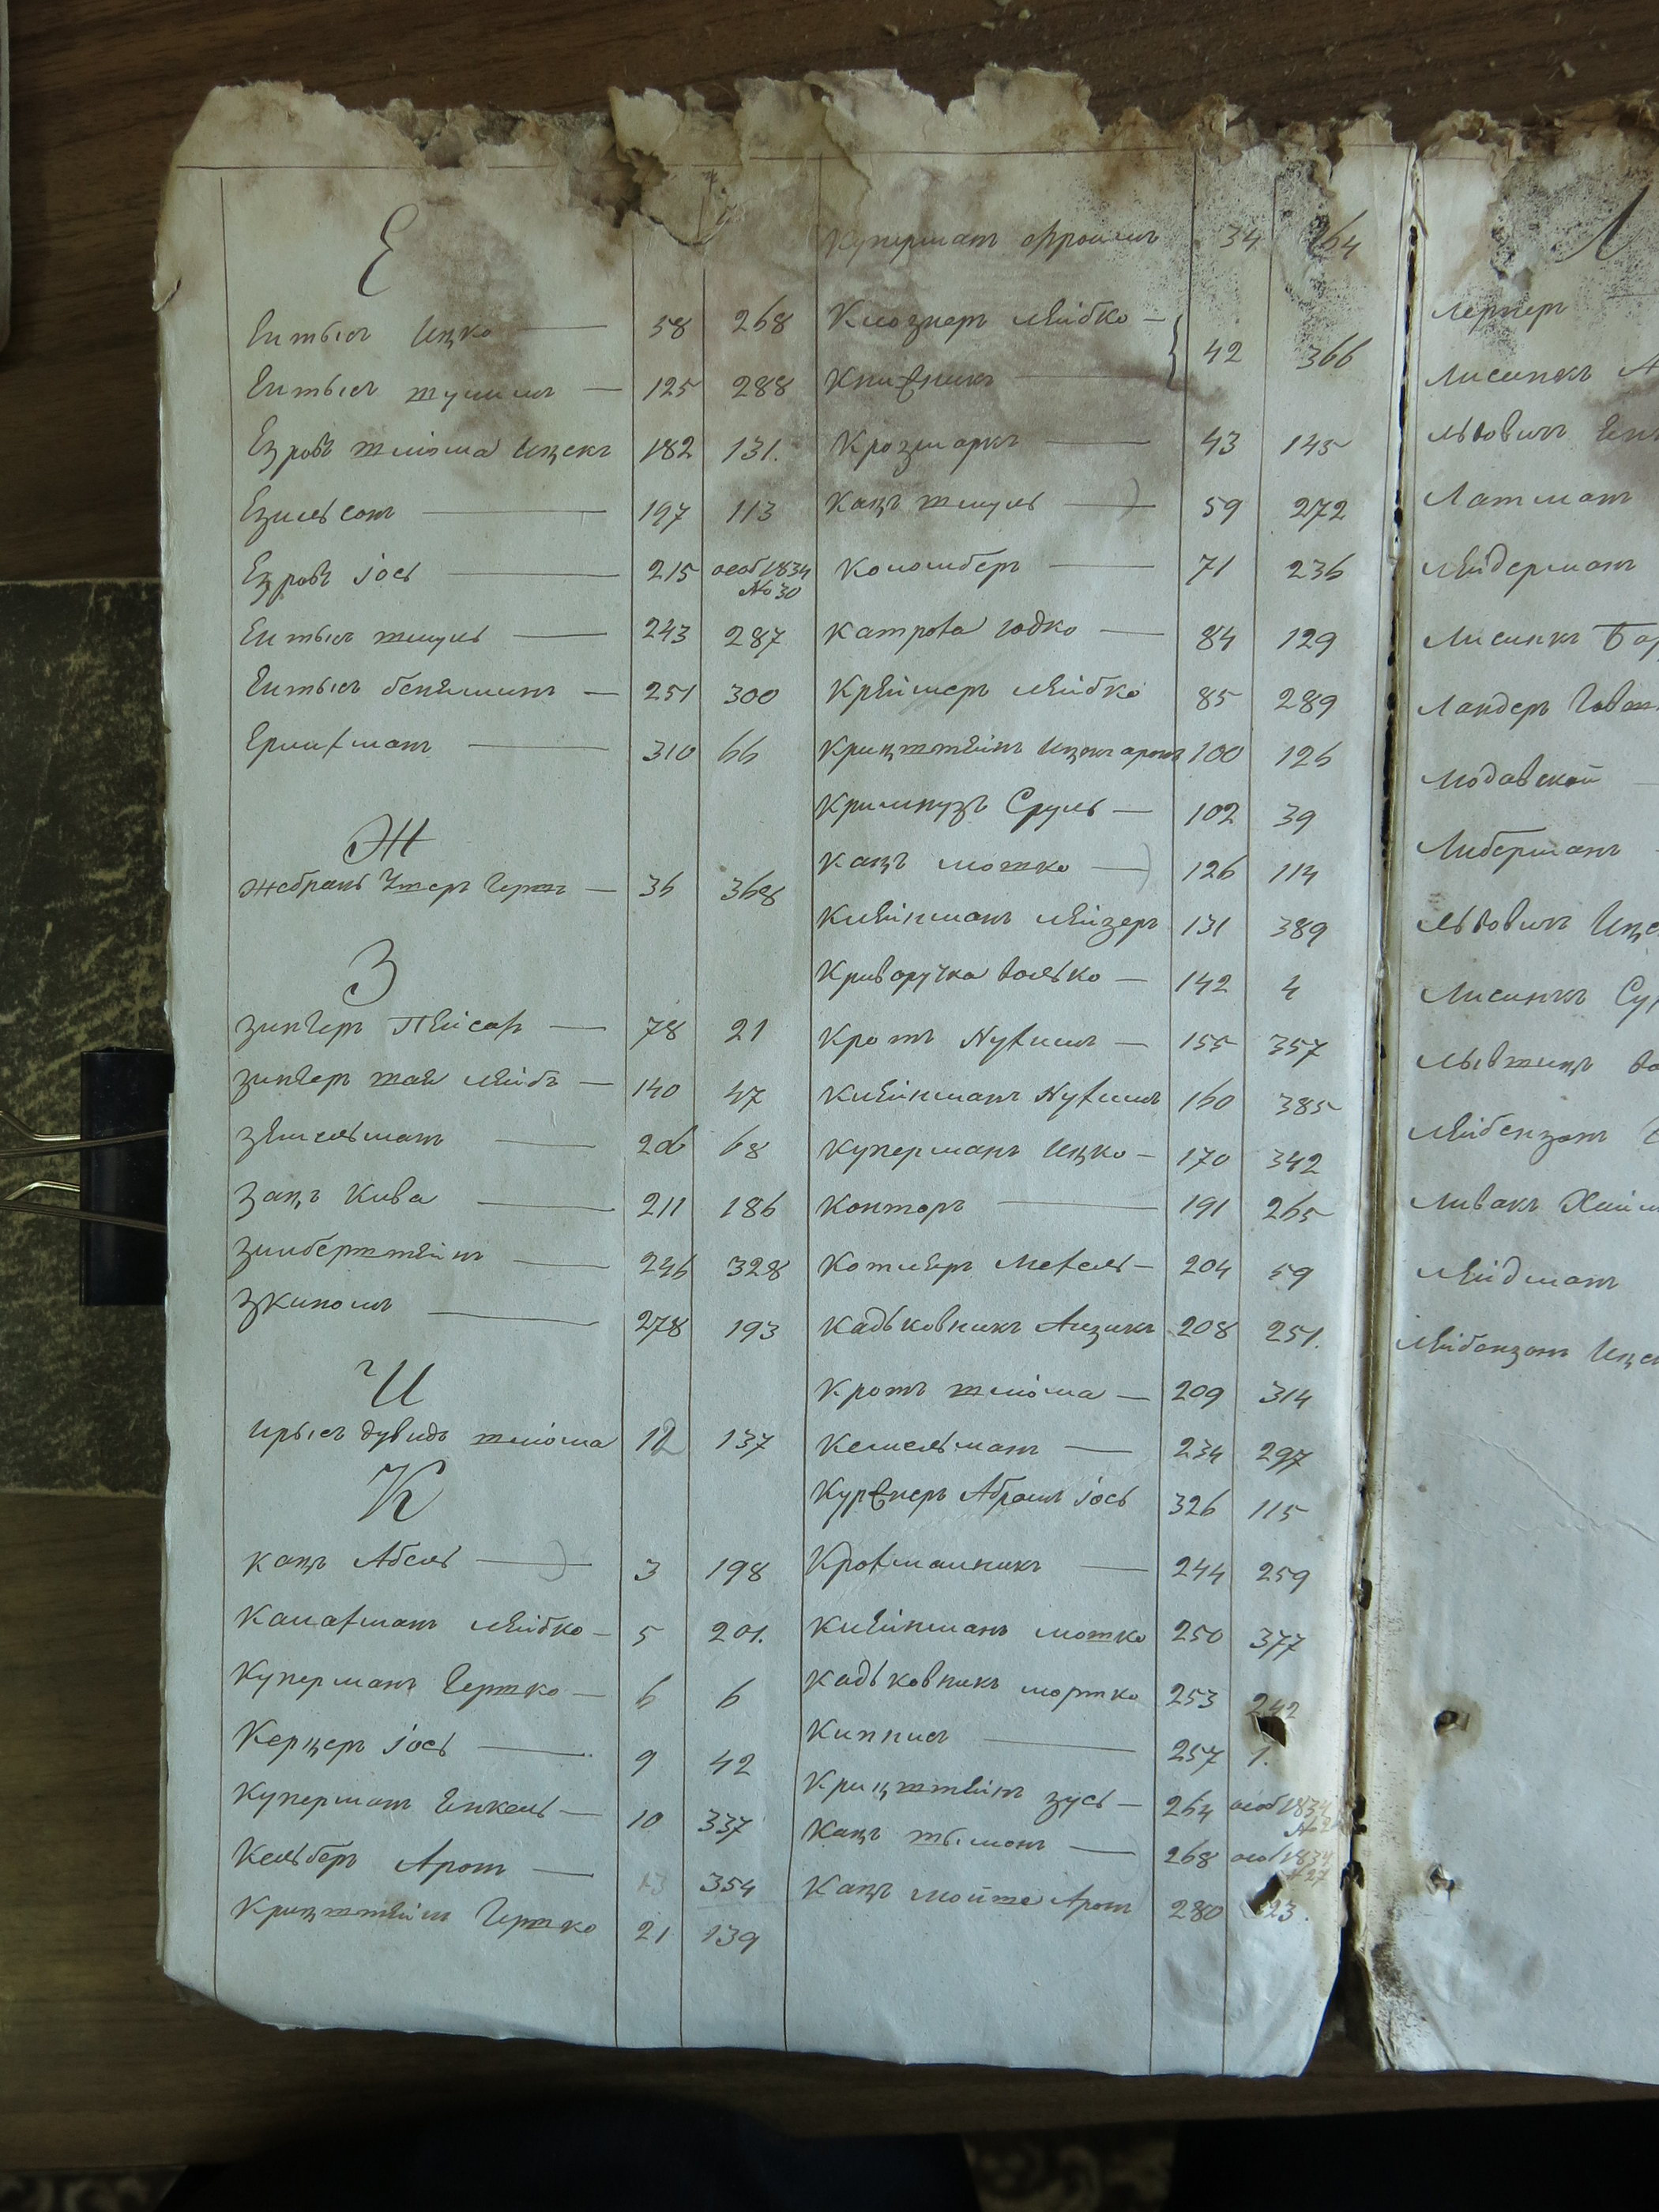 Е
Ентысъ Ицко — 58 268
Ентысъ — 125 288
Езровъ Шліома Ицекъ 182 131.
Езельсонъ — 197 113
Езровъ Іось — 215 особ 1834 № 30
Ентысъ Шмуль — 243 287
Ентысъ Беняминъ — 251 300
Ерлихманъ — 310 66
Ж
Жебракъ Гершъ — 36 368
З
Зингеръ Пейсах — 78 21
Зингеръ Шая Лейбъ — 140 47
Земельманъ — 206 68
Зацъ Кива — 211 186
Зилберштейнъ — 246 328
278 193
И
Ирысъ Дувидъ Шліома 12 137
К
Кацъ Абель — 3 198
Калахманъ Лейбко — 5 201.
Куперманъ Гершко — 6 6
Керцеръ Іось — 9 42
Куперманъ Енкель — 10 337
Кельберъ Аронъ — 13 354
Крицштейнъ Гершко 21 139
Куперманъ Фроимъ 34 264
Клознеръ Лейбко —
Книжникъ — 42 366
Крозмаркъ — 43 145
Кацъ Шмуль — 59 272
Коломберъ — 71 236
Катрова Іодко — 84 129
Креймеръ Лейбко 85 289
Крицштейнъ Ицекъ Аронъ 100 126
Сруль — 102 39
Кацъ Мошко — 126 114
Клейнманъ Лейзеръ 131 389
Криворучка Волько — 142 4
Кротъ Нухимъ — 155 357
Клейнманъ Нухимъ 160 385
Куперманъ Ицко — 170 342
Конторъ — 191 265
Котляръ Мехель — 204 59
Кадьковникъ Айзикъ 208 251.
Кротъ Шліома — 209 314
Кемельманъ — 234 297
Куржнеръ Абрамъ Іось 326 115
Крохмалникъ — 244 259
Клейнманъ Мошко 250 377
Кадьковникъ Мортко 253 242
Киппис — 257 1.
Крицштейнъ Зусь — 264 особ 1834
Кацъ Шымонъ — 268 особ 1834 № 27
Кацъ Мойше Аронъ 280 323.
Л
Лернеръ
Лисинкъ А
Львовичъ
Латманъ
Лейдерманъ
Лисинкъ Бор
Ландеръ
Модавской
Либерманъ
Львовичъ Ице
Лисинкъ Сру
Лейбензонъ
Ливакъ Хаим
Лейдманъ
Лейбензонъ Ице